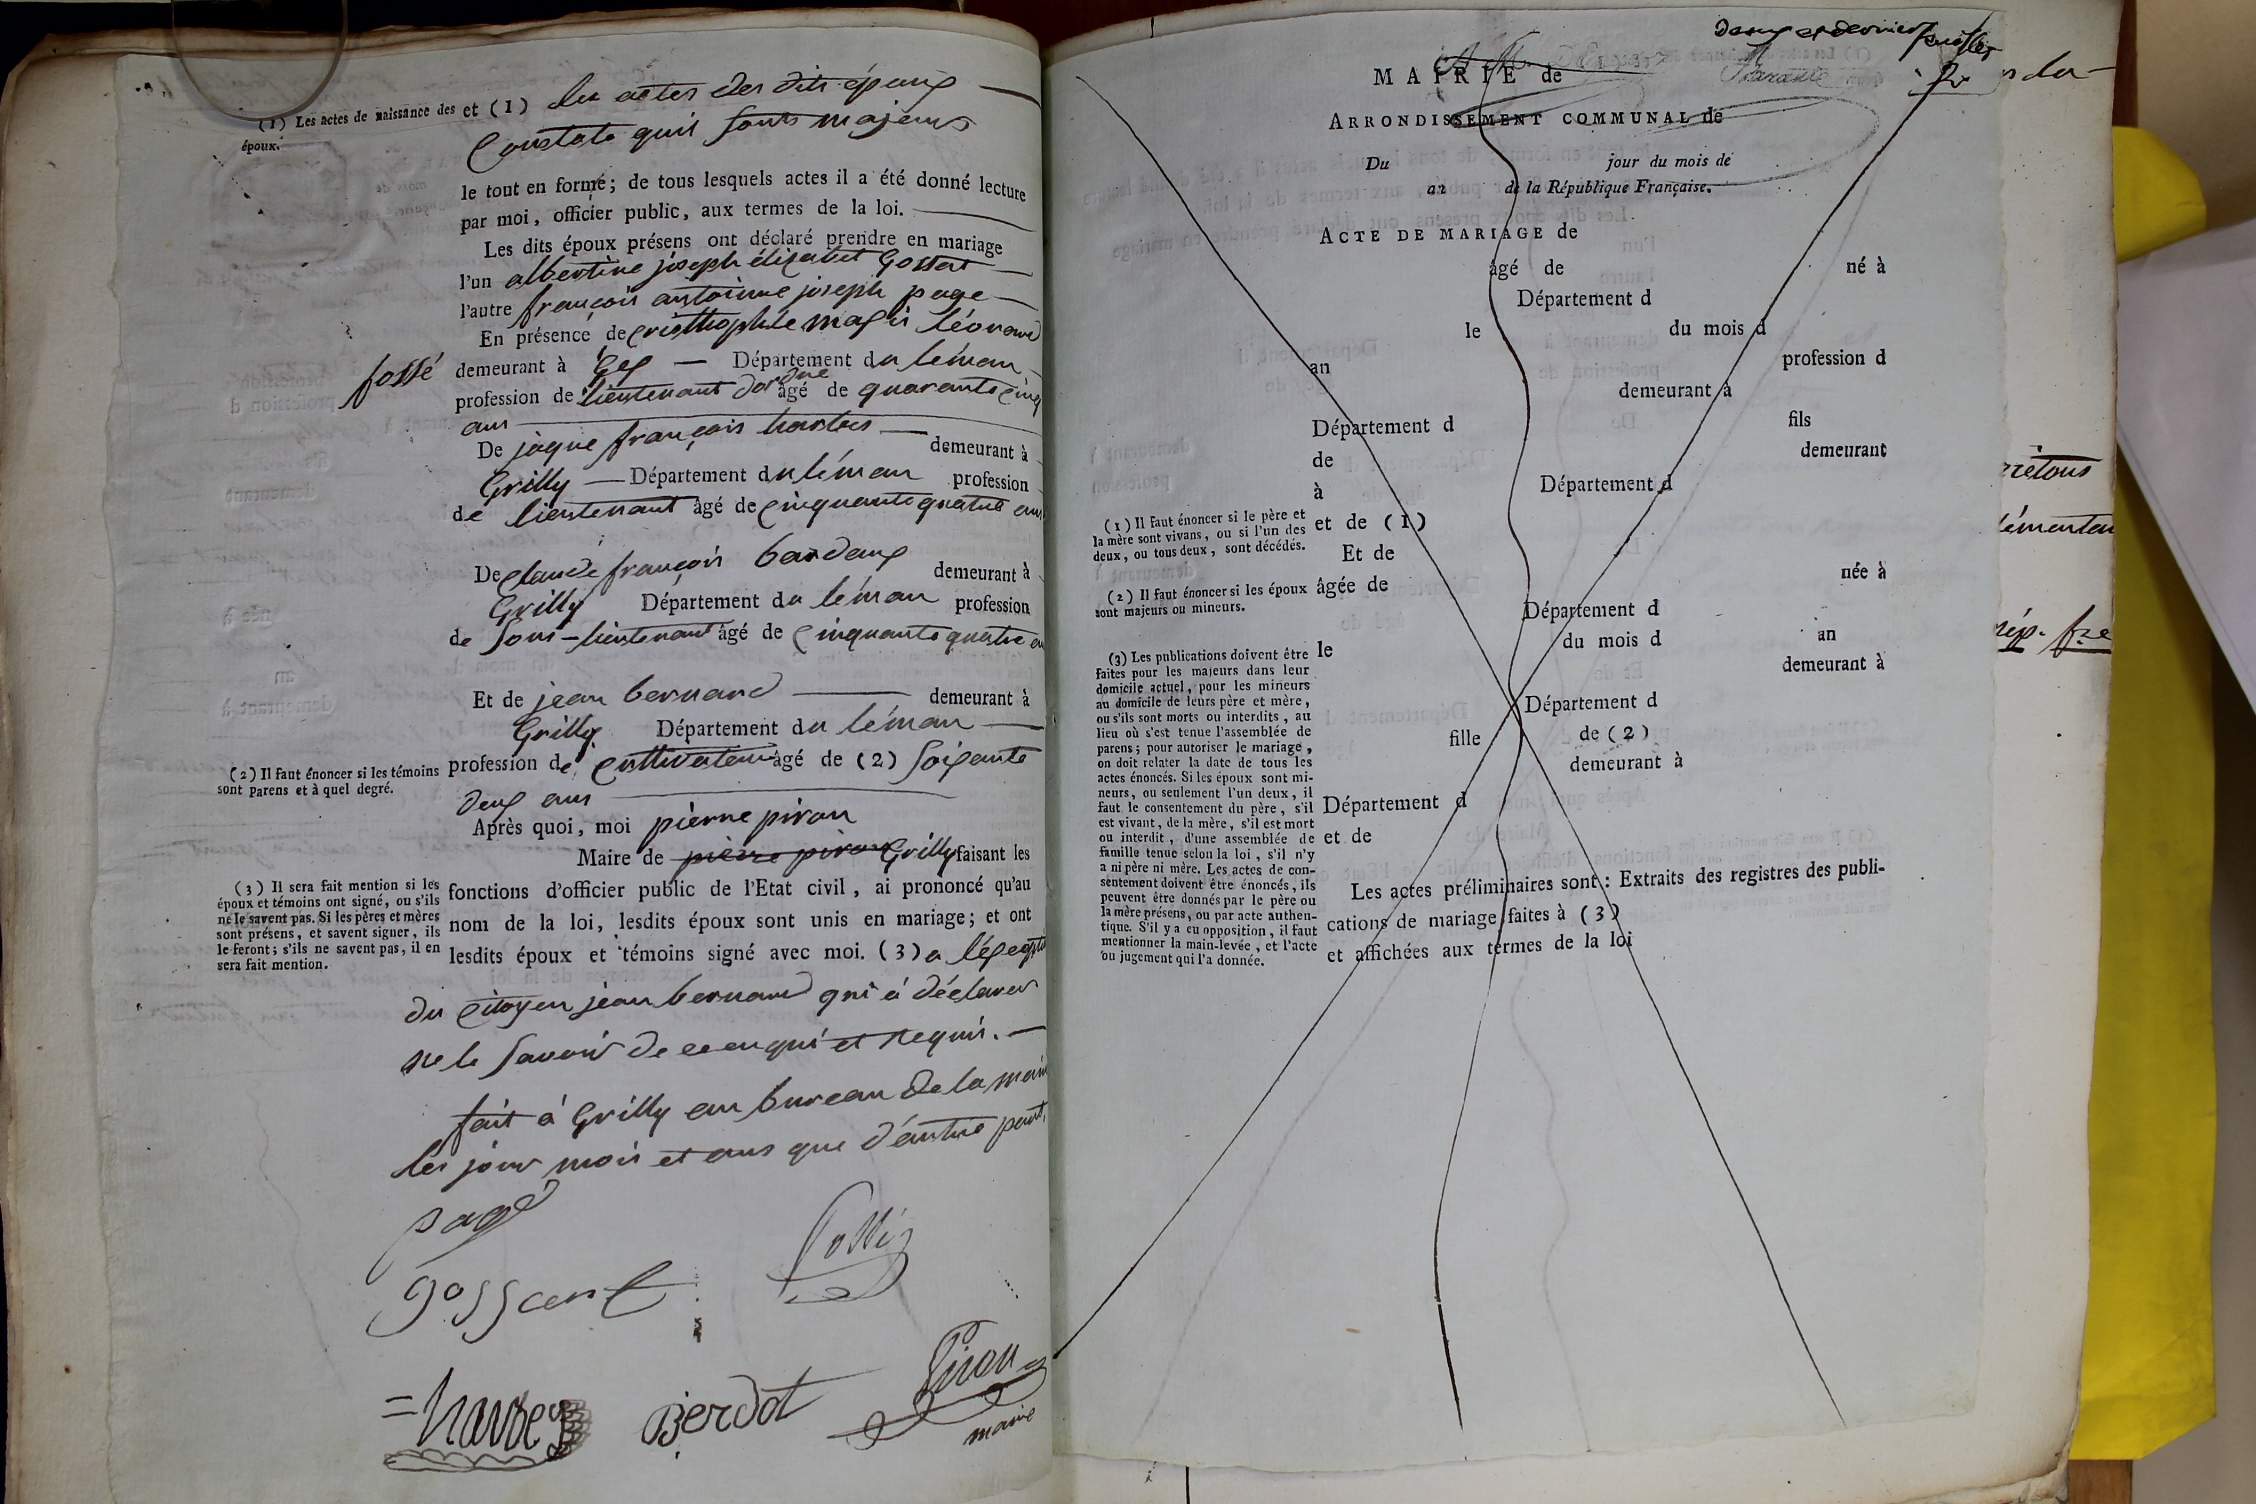 (1) Les actes de naissance des époux.
et (1) les actes des dits époux
Constate quis sonts majeurs
le tout en forme; de tous lesquels actes il a été donné lecture
par moi, officier public, aux termes de la loi.
Les dits époux présens ont déclaré prendre en mariage
l'un albertine joseph élizabet Gossart
l'autre françois antoinne joseph page
En présence de cristhophle magis léonard
fossé
demeurant à Gex — Département du léman
profession de lieutenant dordne âgé de quarante cinq
ans
De jaque françois harbes demeurant à
Grilly — Département du léman profession
de lieutenant âgé de cinquante quatre ans
De claude françois bardaux demeurant à
Grilly Département du léman profession
de sous-lieutenant âgé de cinquante quatre
Et de jean bernard demeurant à
Grilly Département du léman
(2) Il faut énoncer si les témoins
sont parens et à quel degré.
profession de cultivateur âgé de (2) soixante
deux ans
Après quoi, moi pierre piron
Maire de pierre piron Grilly faisant les
(3) Il sera fait mention si les
époux et témoins ont signé, ou s'ils
ne le savent pas. Si les pères et mères
sont présens, et savent signer, ils
le feront; s'ils ne savent pas, il en
sera fait mention.
fonctions d'officier public de l'Etat civil, ai prononcé qu'au
nom de la loi, lesdits époux sont unis en mariage; et ont
lesdits époux et témoins signé avec moi. (3) a
du citoyen jean bernard qui à déclarer
ne le savoir de ce enquis et requis.
fait à Grilly au bureau de la mairi
les jour mois et ans que d'autre part
page
gosscart
Berdot
Piron
maire
MAIRIE de
ARRONDISSEMENT COMMUNAL de
Du jour du mois de
an de la République Française.
ACTE DE MARIAGE de
âgé de né à
Département d
le du mois d
an profession d
demeurant à
Département d fils
de demeurant
à Département d
(1) Il faut énoncer si le père et
la mère sont vivans, ou si l'un des
deux, ou tous deux, sont décédés.
et de (1)
Et de
(2) Il faut énoncer si les époux
sont majeurs ou mineurs.
âgée de née à
Département d
le du mois d an
demeurant à
Département d
fille de (2)
demeurant à
Département d
et de
(3) Les publications doivent être
faites pour les majeurs dans leur
domicile actuel, pour les mineurs
au domicile de leurs père et mère,
ou s'ils sont morts ou interdits, au
lieu où s'est tenue l'assemblée de
parens; pour autoriser le mariage,
on doit relater la date de tous les
actes énoncés. Si les époux sont mi-
neurs, ou seulement l'un deux, il
faut le consentement du père, s'il
est vivant, de la mère, s'il est mort
ou interdit, d'une assemblée de
famille tenue selon la loi, s'il n'y
a ni père ni mère. Les actes de con-
sentement doivent être énoncés, ils
peuvent être donnés par le père ou
la mère présens, ou par acte authen-
tique. S'il y a eu opposition, il faut
mentionner la main-levée, et l'acte
ou jugement qui l'a donnée.
Les actes préliminaires sont : Extraits des registres des publi-
cations de mariage faites à (3)
et affichées aux termes de la loi